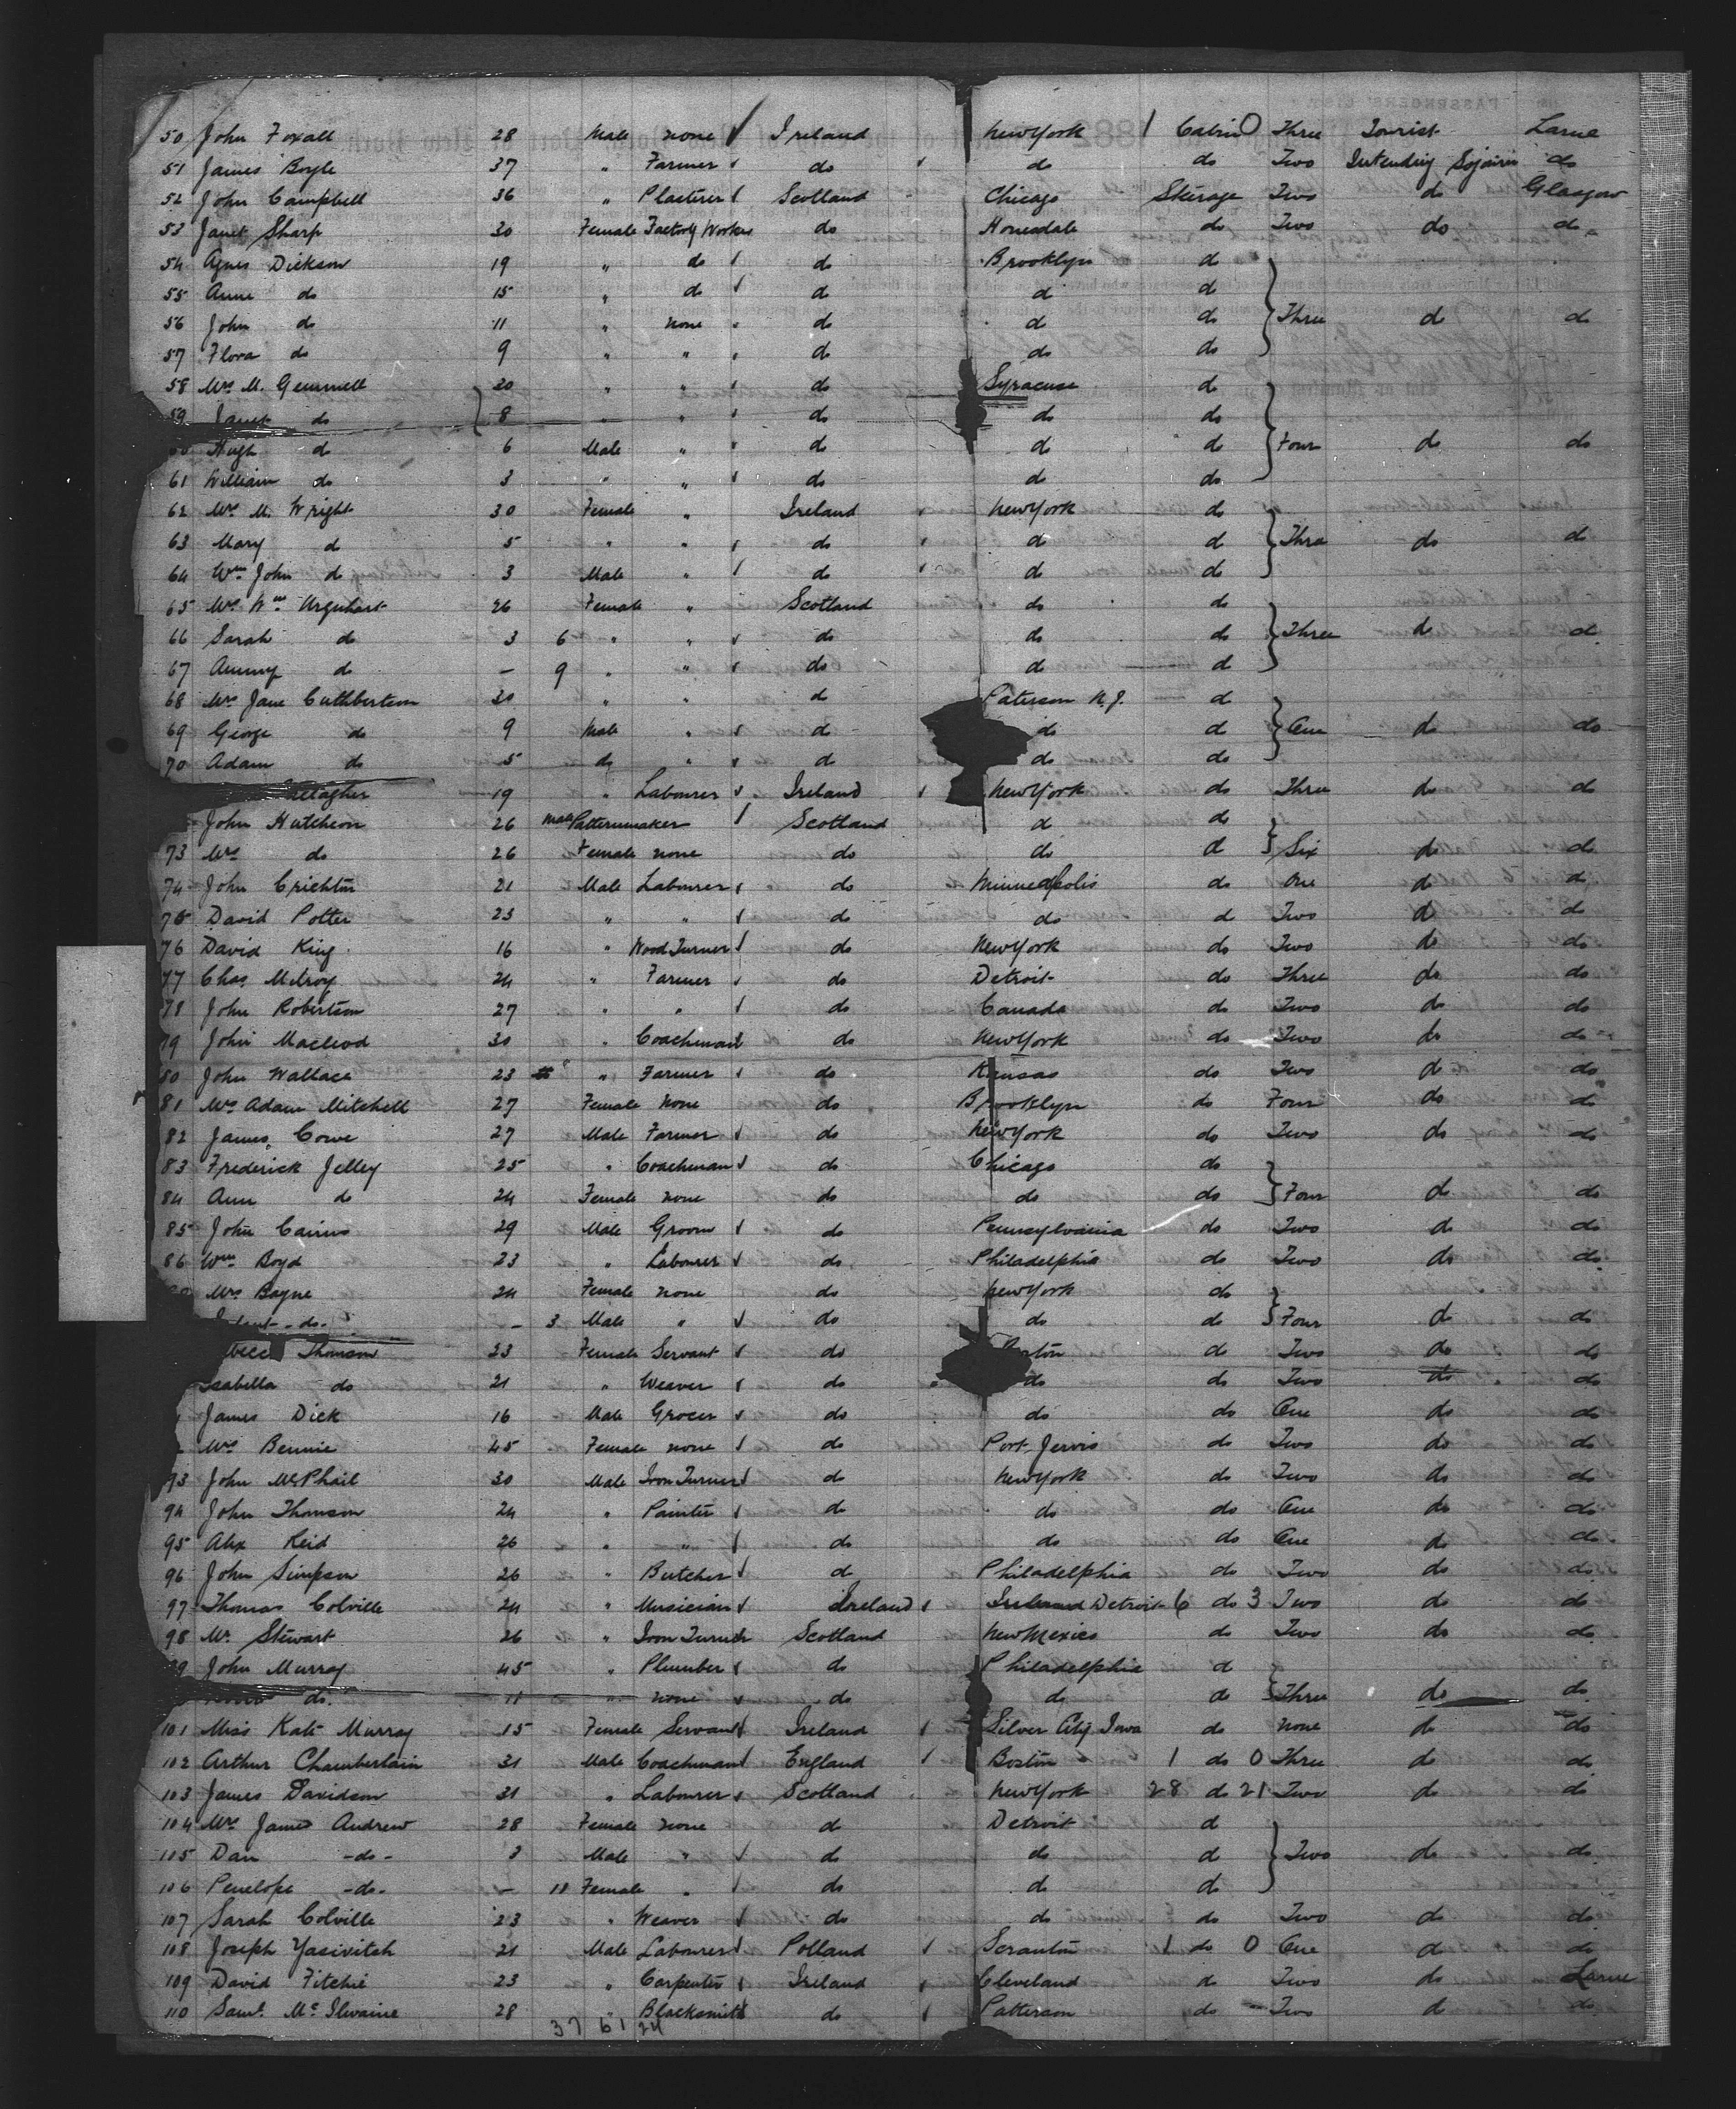 50 John Foxall 28 Male none Ireland New York 1 Cabin 0 Three Tourist Larne
51 James Boyle 37 " Farmer do do do Two Intending Sojourn do
52 John Campbell 36 " Plasterer Scotland Chicago Steerage Two do Glasgow
53 Janet Sharp 30 Female Factory Worker do Honesdale do Two do do
54 Agnes Dickson 19 " do do Brooklyn do
55 Anne do 15 " do do do do
56 John do 11 " none do do do Three do do
57 Flora do 9 " " do do do
58 Mrs M. Gemmell 30 " " do Syracuse do
59 Janet do 8 " " do do do
Hugh do 6 Male " do do do Four do do
61 William do 3 " " do do do
62 Mrs M. Wright 30 Female " Ireland New York do
63 Mary do 5 " " do do do Three do do
64 Wm John do 3 Male " do do do
65 Mrs Wm Urquhart 26 Female " Scotland do do
66 Sarah do 3 6 " " do do do Three do do
67 do - 9 " " do do do
68 Mrs Jane Cuthbertson 30 " " do Paterson N.J. do
69 George do 9 Male " do do do One do do
70 Adam do 5 do " do do do
19 " Labourer Ireland New York do Three do do
John Hutcheon 26 Male Patternmaker Scotland do do
73 Mrs do 26 Female none do do do Six do do
74 John Crichton 21 Male Labourer do Minneapolis do One do do
75 David Potter 23 " " do do do Two do do
76 David King 16 " Wood Turner do New York do Two do do
77 Chas Milroy 24 " Farmer do Detroit do Three do do
78 John Robertson 27 " " do Canada do Two do do
79 John Macleod 30 " Coachman do New York do Two do do
80 John Wallace 23 " Farmer do Kansas do Two do do
81 Mrs Adam Mitchell 27 Female none do Brooklyn do Four do do
82 James Cowe 27 Male Farmer do New York do Two do do
83 Frederick Jelley 25 " Coachman do Chicago do
84 Ann do 24 Female none do do do Four do do
85 John Cairns 29 Male Groom do Pennsylvania do Two do do
86 Wm Boyd 23 " Labourer do Philadelphia do Two do do
Mrs Bayne 24 Female none do New York do
Infant -do- - 3 Male " do do do Four do do
Thomson 23 Female Servant do do Two do do
Isabella do 21 " Weaver do do do Two do do
James Dick 16 Male Grocer do do do One do do
Mrs Bennie 45 Female none do Port Jervis do Two do do
93 John McPhail 30 Male Iron Turner do New York do Two do do
94 John Thomson 24 " Painter do do do One do do
95 Alex Reid 26 " " do do do One do do
96 John Simpson 26 " Butcher do Philadelphia do Two do do
97 Thomas Colville 24 " Musician Ireland Detroit 6 do 3 Two do do
98 Mr Stewart 26 " Iron Turner Scotland New Mexico do Two do do
99 John Murray 45 " Plumber do Philadelphia do
do 11 " none do do do Three do do
101 Miss Kate Murray 15 Female Servant Ireland Silver City Iowa do none do do
102 Arthur Chamberlain 31 Male Coachman England Boston 1 do 0 Three do do
103 James Davidson 31 " Labourer Scotland New York 28 do 21 Two do do
104 Mrs James Andrew 28 Female none do Detroit do
105 Dan -do- 3 Male " do do do Two do do
106 Penelope -do- - 11 Female " do do do
107 Sarah Colville 23 " Weaver do do do Two do do
108 Joseph Yasivitch 21 Male Labourer Polland Scranton 1 do 0 One do do
109 David Fitchie 23 " Carpenter Ireland Cleveland do Two do Larne
110 Saml McIlwaine 28 " Blacksmith do Patterson do Two do do
37 61 24